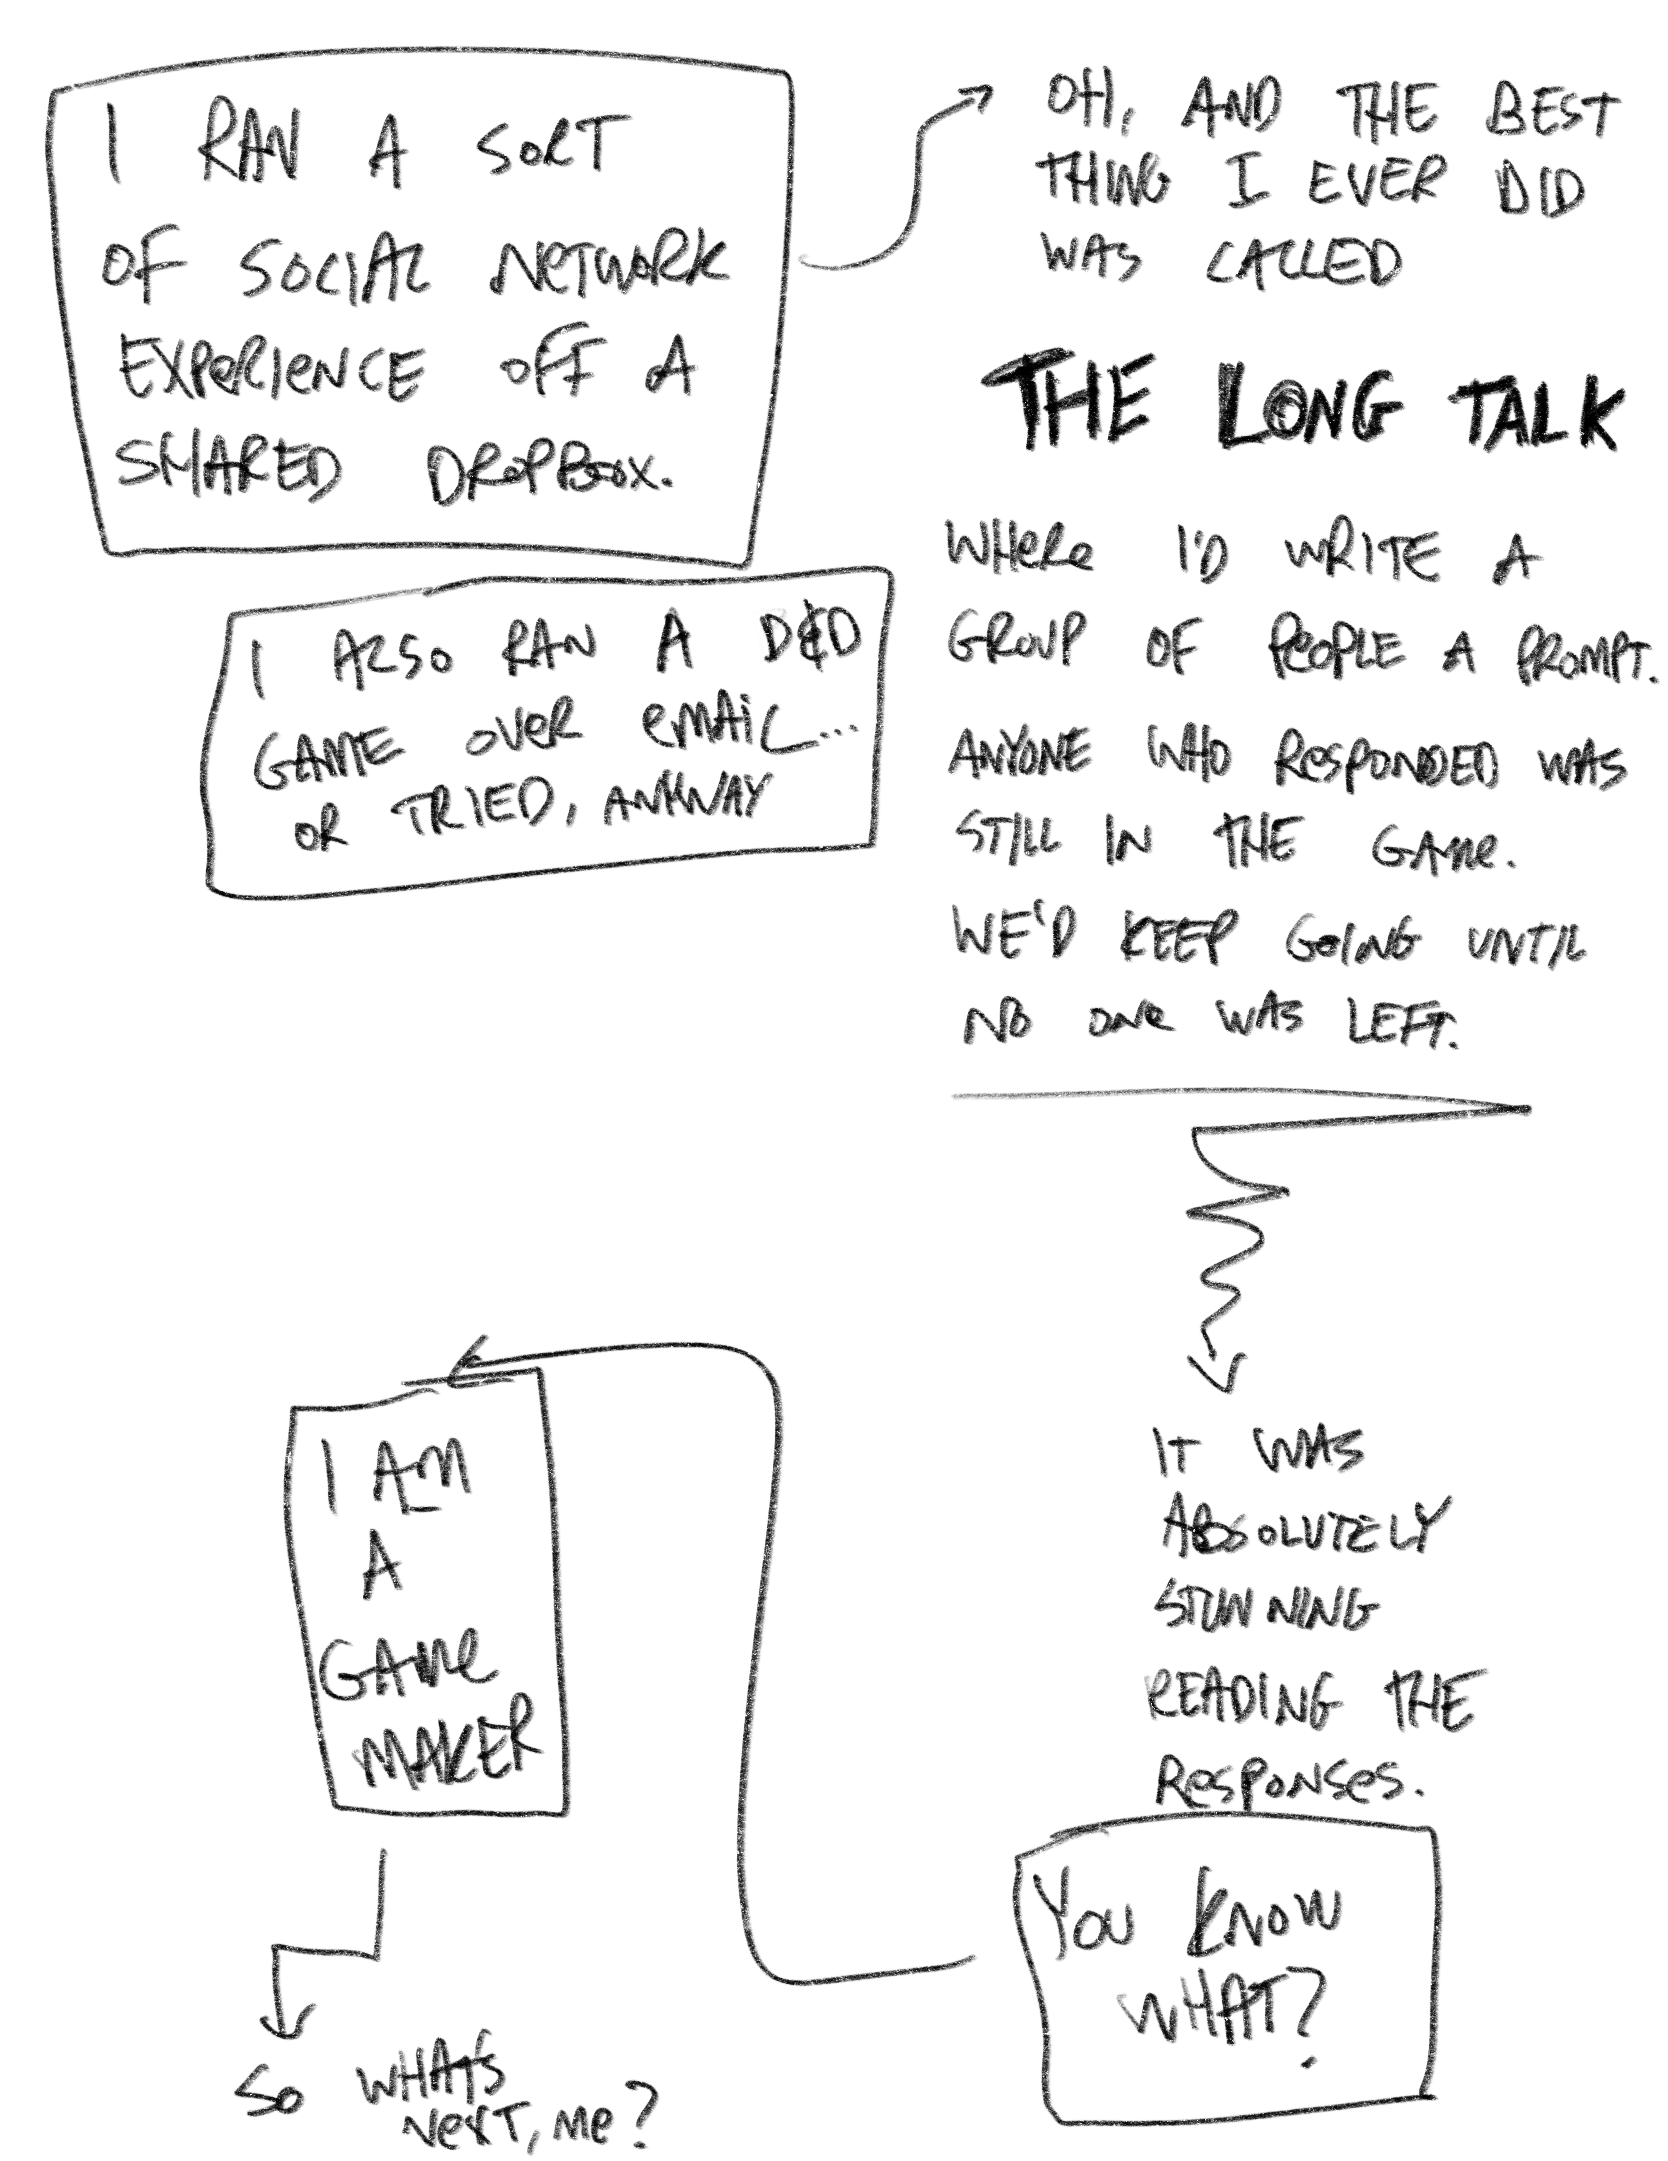 I RAN A SORT
OF SOCIAL NETWORK
EXPERIENCE OFF A
SHARED DROPBOX.
I ALSO RAN A D&D
GAME OVER EMAIL...
OR TRIED, ANYWAY
OH, AND THE BEST
THING I EVER DID
WAS CALLED
THE LONG TALK
WHERE I'D WRITE A
GROUP OF PEOPLE A PROMPT.
ANYONE WHO RESPONDED WAS
STILL IN THE GAME.
WE'D KEEP GOING UNTIL
NO ONE WAS LEFT.
IT WAS
ABSOLUTELY
STUNNING
READING THE
RESPONSES.
YOU KNOW
WHAT?
I AM
A
GAME
MAKER
SO WHAT'S
NEXT, ME?